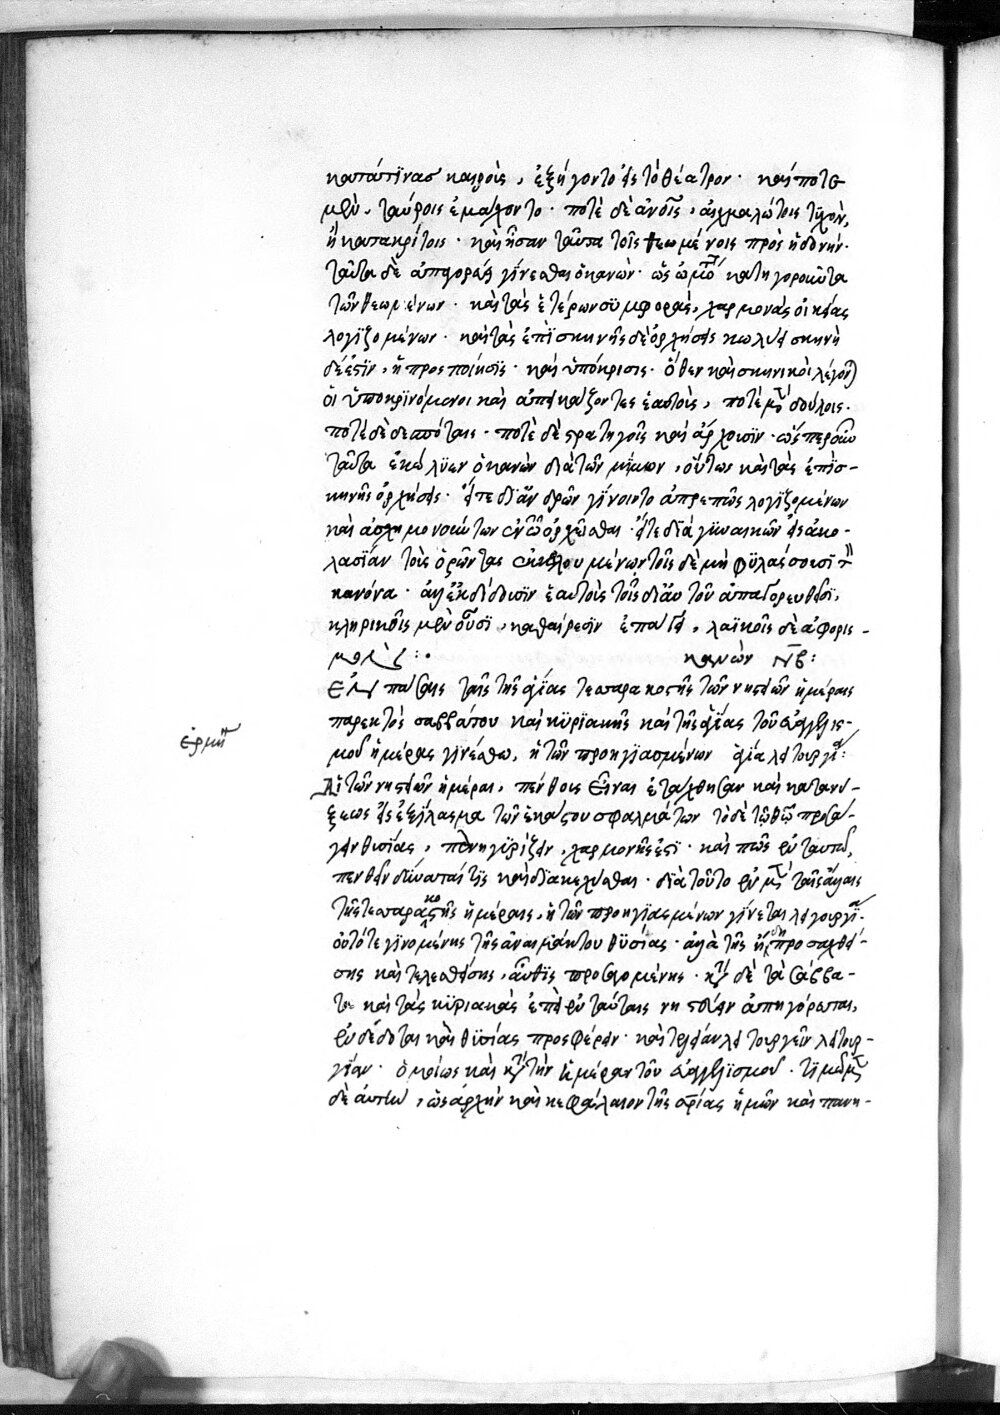 κατά τινας καιροὺς, ἐξήγοντο εἰς τὸ θέατρον· καί ποτε
μὲν, ταύροις ἐμάχοντο· ποτὲ δὲ ἀνοῖς, αἰχμαλώτοις τυχὸν,
ἢ κατακρίτοις· καὶ ἦσαν ταῦτα τοῖς θεωμένοις πρὸς ἡδονήν·
ταῦτα δὲ ἀπαγορεύει γίνεσθαι ὁ κανὼν· ὡς ὠμότητα κατηγοροῦντα
τῶν θεωμένων· καὶ τὰς ἑτέρων συμφορὰς, χαρμονὰς οἰκείας
λογιζομένων· καὶ τὰς ἐπὶ σκηνῆς δὲ ὀρχήσεις κωλύει σκηνὴ
δέ ἐστιν, ἡ προσποίησις· καὶ ὑπόκρισις· ὅθεν καὶ σκηνικοὶ λέγονται
οἱ ὑποκρινόμενοι καὶ ἀπεικάζοντες ἑαυτοὺς, ποτὲ μὲν δούλοις·
ποτὲ δὲ δεσπόταις· ποτὲ δὲ στρατηγοῖς καὶ ἄρχουσιν· ὥσπερ οὖν
ταῦτα ἐκώλυεν ὁ κανὼν διὰ τῶν μίμων, οὕτω καὶ τὰς ἐπὶ σ-
κηνῆς ὀρχήσεις· εἴτε δι' ἀνδρῶν γίνοιντο ἀπρεπῶς λογιζομένων
καὶ ἀσχημονούντων ἐν τῷ ὀρχεῖσθαι· εἴτε διὰ γυναικῶν εἰς ἀκο-
λασίαν τοὺς ὁρῶντας ἐκκαλουμένων τοῖς δὲ μὴ φυλάσσουσι τὸν
κανόνα· ἀλλ' ἐκδιδοῦσιν ἑαυτοὺς τοῖς δι' αὐτοῦ ἀπαγορευθεῖσι,
κληρικοῖς μὲν οὖσι, καθαίρεσιν ἐπάγει, λαϊκοῖς δὲ ἀφορισ-
μόν:· κανὼν ΝΒ:
Ἐν πάσαις ταῖς τῆς ἁγίας τεσσαρακοστῆς τῶν νηστειῶν ἡμέραις
παρεκτὸς σαββάτου καὶ κυριακῆς καὶ τῆς ἁγίας τοῦ εὐαγγελισ-
μοῦ ἡμέρας γινέσθω, ἡ τῶν προηγιασμένων ἁγία λειτουργία:
ἑρμη
Αἱ τῶν νηστειῶν ἡμέραι, πένθους εἶναι ἐτάχθησαν καὶ κατανύ-
ξεως εἰς ἐξίλασμα τῶν ἑκάστου σφαλμάτων τὸ δὲ τῷ θῶ προσά-
γειν θυσίας, πανηγυρίζειν, χαρμονῆς ἐστι· καὶ πῶς ἐν ταυτῷ,
πενθεῖν δύναταί τις καὶ διακεχύσθαι· διὰ τοῦτο ἐν μὲν ταῖς ἄλλαις
τῆς τεσσαρακοστῆς ἡμέραις, ἡ τῶν προηγιασμένων γίνεται λειτουργία·
οὐ τότε γινομένης τῆς ἀναιμάκτου θυσίας· ἀλλὰ τῆς ἤδη προσαχθεί-
σης καὶ τελεσθείσης, αὖθις προσαγομένης· κατὰ δὲ τὰ σάββα-
τα καὶ τὰς κυριακὰς ἐπεὶ ἐν ταύταις νηστεύειν ἀπηγόρευται,
ἐνδέδοται καὶ θυσίας προσφέρειν· καὶ τελείαν λειτουργεῖν λειτουρ-
γίαν· ὁμοίως καὶ κατὰ τὴν ἡμέραν τοῦ εὐαγγελισμοῦ· τιμῶμεν
δὲ αὐτὴν, ὡς ἀρχὴν καὶ κεφάλαιον τῆς σρίας ἡμῶν καὶ πανη-